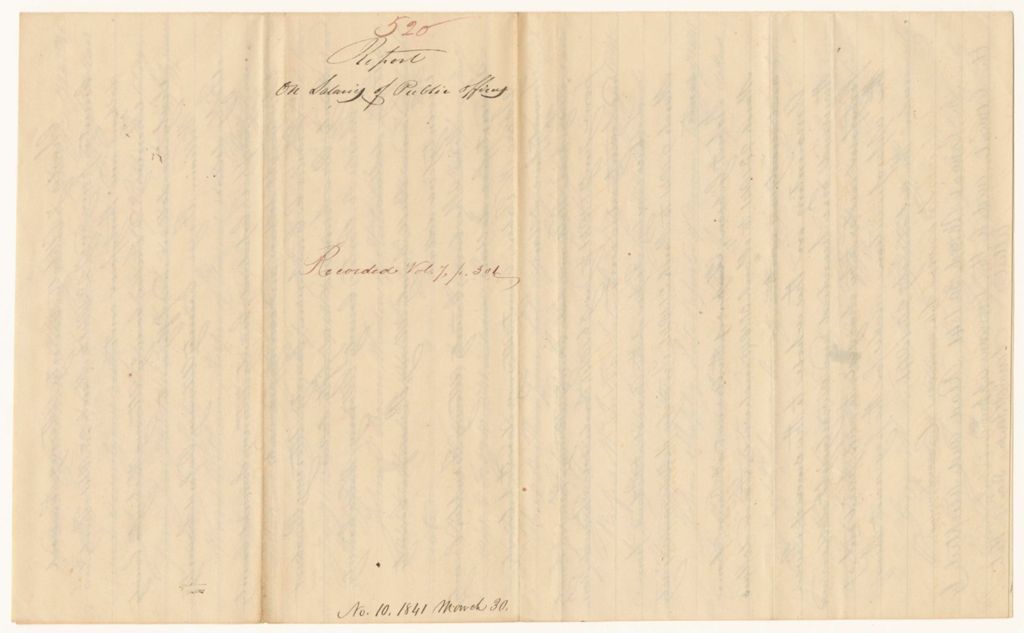 520
Report
On Salaries of Public Officers
Recorded Vol. 7, p. 301
No. 10. 1841 March 30.